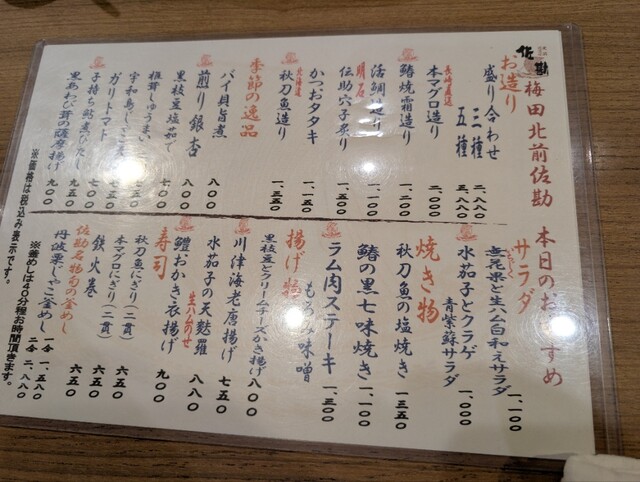 佐勘
梅田北前佐勘 本日のおすすめ
お造り
盛り合わせ 三種 二、八八〇
五種 三、八八〇
長崎直送
本マグロ造り 二、〇〇〇
鰆焼霜造り 一、二〇〇
活鯛造り 一、一〇〇
明石
伝助穴子炙り 一、五〇〇
かつおタタキ 一、一五〇
北海道
秋刀魚造り 一、三五〇
季節の逸品
バイ貝旨煮 八〇〇
煎り銀杏 八〇〇
黒枝豆塩茹で 七〇〇
椎茸しゅうまい
宇和島じゃこ天
ガリトマト
子持ち鮎煮びたし 九五〇
黒あわび茸の薩摩揚げ 九〇〇
※価格は税込み表示です。
サラダ
いちじく
無花果と生ハム白和えサラダ 一、一〇〇
水茄子とクラゲ
青紫蘇サラダ 一、〇〇〇
焼き物
秋刀魚の塩焼き 一三五〇
鰆の黒七味焼き 一、一〇〇
ラム肉ステーキ
もろみ味噌 一、三〇〇
揚げ物
黒枝豆とクリームチーズかき揚げ 八〇〇
川津海老唐揚げ 七五〇
水茄子の天麩羅
生ハムのせ 八八〇
鱧おかき衣揚げ 九〇〇
寿司
秋刀魚にぎり(二貫) 六五〇
本マグロにぎり(二貫) 六五〇
鉄火巻 六五〇
佐勘名物旬の釜めし
丹波栗しゃこ釜めし 一合 一、五八〇
二合 二、八八〇
※釜めしは40分程お時間頂きます。